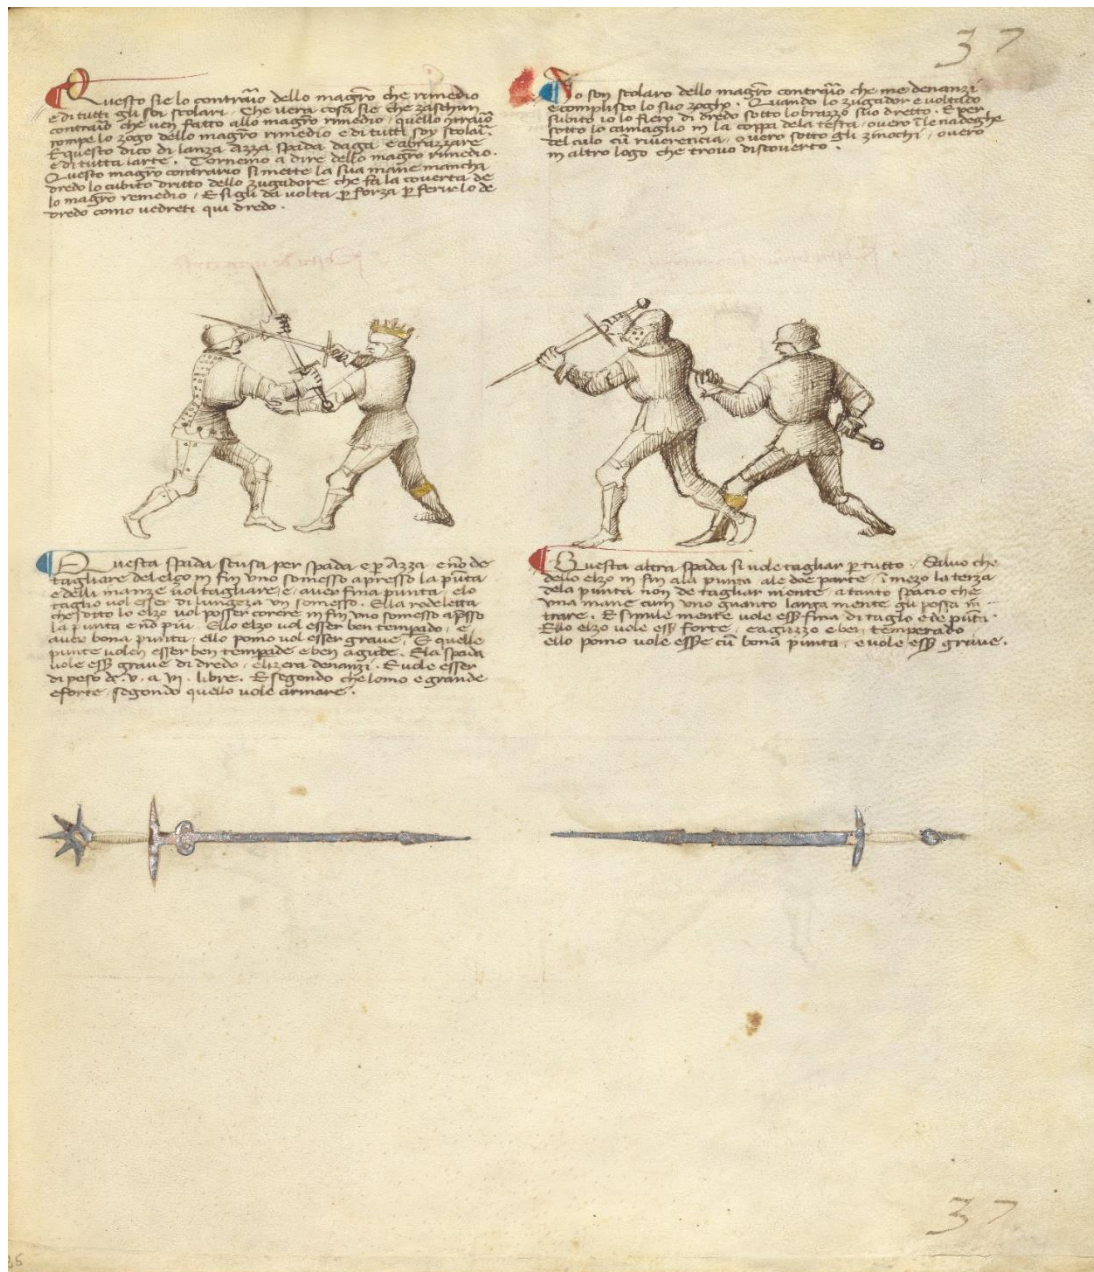 37
Questo sie lo contrario dello magro che remedio
e di tutti gli soi scolari. Che vera cosa sie che zaschun
contrario che ven fatto allo magro rimedio, quello
rompe lo zogo dello magro rimedio e di tutti soy scolari.
E questo dico di lanza azza spada daga e abrazzare
e di tutta larte. Tornemo a dire dello magro rimedio.
Questo magro contrario si mette la sua mane mancha
dredo lo cubito dritto dello zugadore che fa la coverta de
lo magro remedio, E sigli da volta p forza p ferirlo de
dredo como vedreti qui dredo.
Io son scolaro dello magro contrario che me denanzi
e complisco lo suo zogho. Quando lo zugador e voltado
subito io lo fiero di dredo sotto lo brazzo suo dretto. E per
sotto lo camaglio in la coppa dela testa, overo i le nadeghe
del culo cum riverencia, o vero sotto gli zinochi, overo
in altro logo che trovo discoverto.
Questa spada scusa per spada e p Azza e no de
tagliare del elzo in fin uno somesso apresso la puta
e delli inanze vol tagliare, e aver fina punta, elo
taglio vol esser di lungeza un somesso. Ella rodeletta
che sotto lo elzo vol posser corere in fin uno somesso apsso
la punta e no piu. Ello elzo vol esser ben tempado, e
aver bona punta, ello pomo vol esser grave. E quelle
punte volen esser ben tempade e ben agude. Ela spada
vole esser grave di dredo, elizera denanzi. E vole esser
di peso de .v. a vj. libre. E segondo che lomo e grande
e forte, segondo quello vole armare.
Questa altra spada si vole tagliar p tutto. Salvo che
dello elzo in fin ala punta ale doe parte, i mezo la terza
dela punta non de tagliar niente, a tanto spacio che
una mane cum uno guanto larga mente gli possa in
trare. E simile mente vole esser fina di taglo e de puta
Ello elzo vole esser forte, e aguzzo e ben temperado
ello pomo vole esse cum bona punta, e vole esser grave.
37